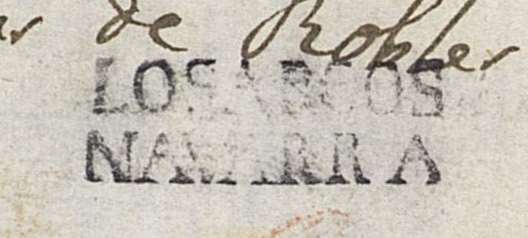 de Robles
LOSARCOS
NAVARRA